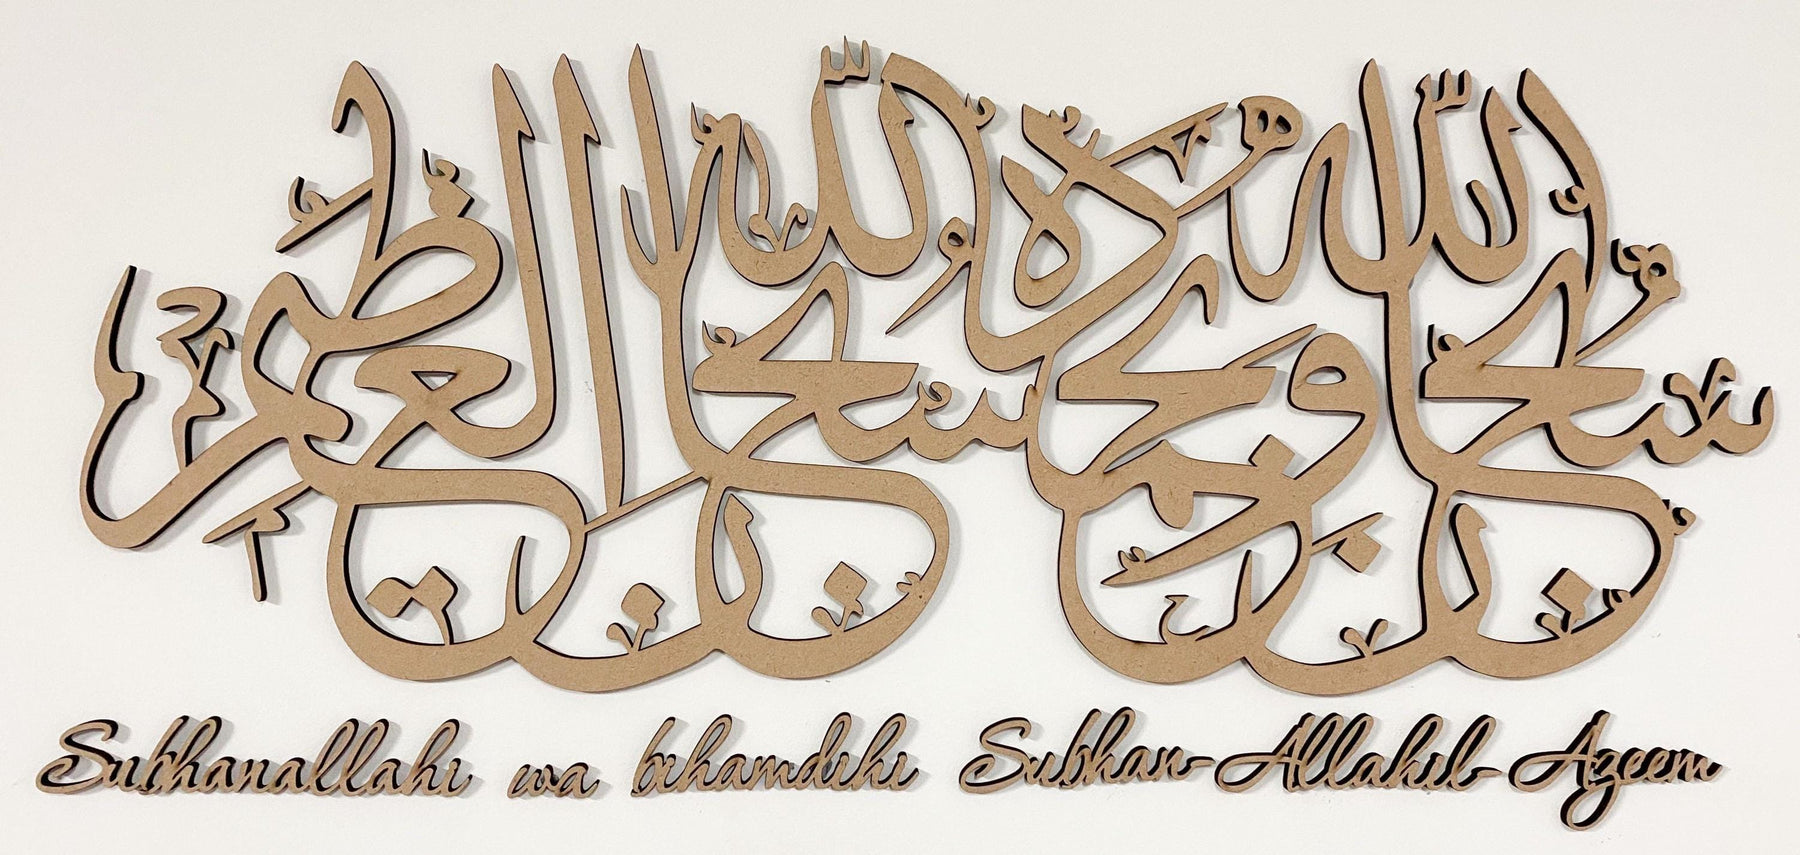 سُبْحَانَ اللهِ وَبِحَمْدِهِ سُبْحَانَ اللهِ الْعَظِيمِ
Subhanallahi wa bihamdihi Subhan-Allahil-Azeem